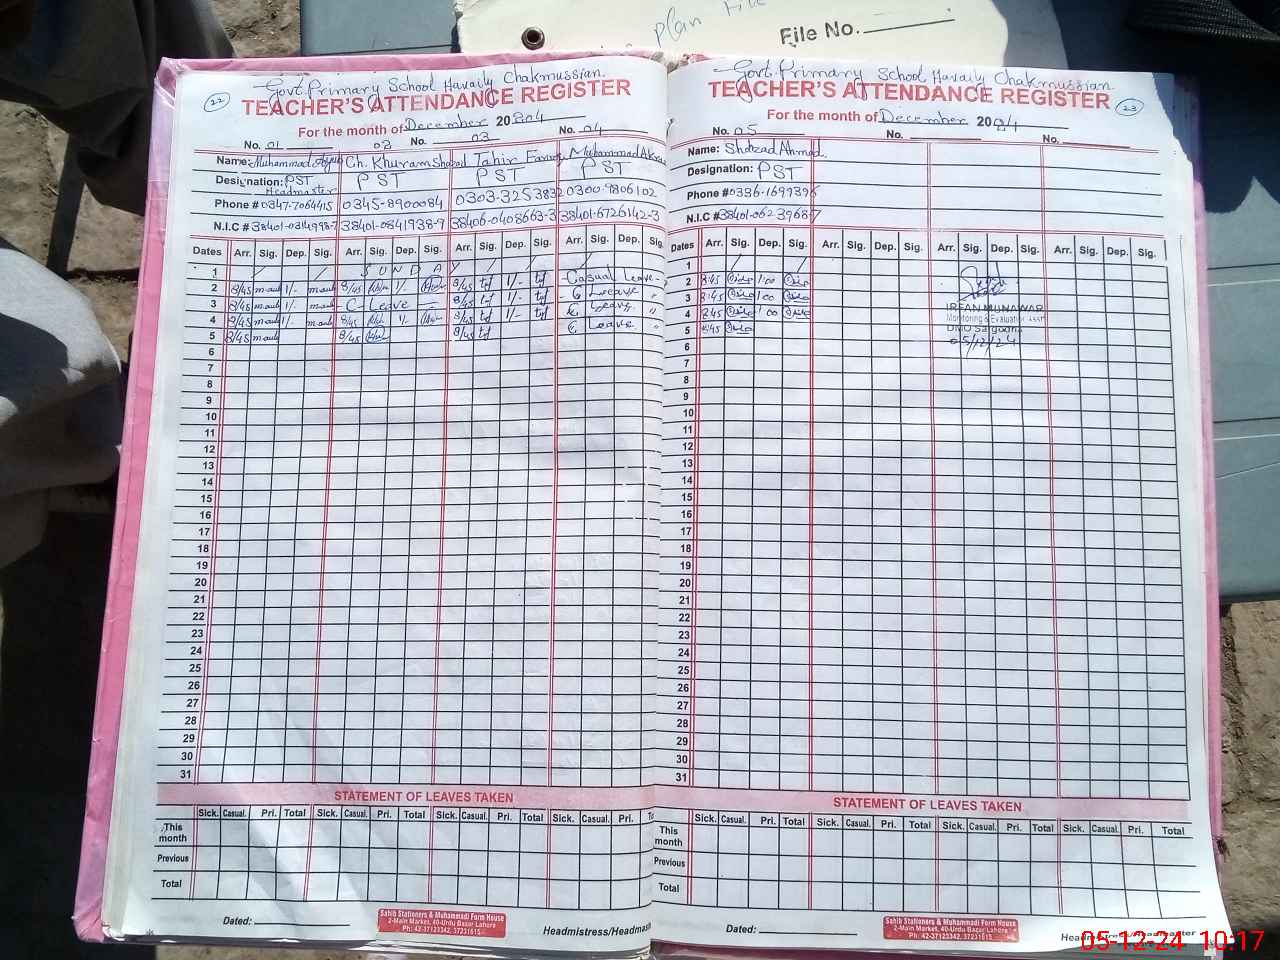 plan File
File No.
Govt. Primary School Havaily Chakmussian.
22
TEACHER'S ATTENDANCE REGISTER
For the month of December 2024
No. 01 02 No. 03 No. 04
Name: Muhammad Ch. Khuram Shahzad Tahir Farooq Muhammad Akram
Designation: PST PST PST PST
Headmaster
Phone # 0347-7064415 0345-8900084 0303-3253832 0300-9806102
N.I.C # 38401-0314998-7 38401-0841938-9 38406-0408663-3 38401-6726142-3
Dates Arr. Sig. Dep. Sig. Arr. Sig. Dep. Sig. Arr. Sig. Dep. Sig. Arr. Sig. Dep. Sig.
1 / / S U N D A Y / / / /
2 8/45 1/- 8/45 1/- 8/45 1/- Casual Leave
3 8/45 1/- C-Leave 8/45 1/- Leave "
4 8/45 1/- 8/45 1/- 8/45 1/- Leave "
5 8/45 8/45 8/45 Leave "
6
7
8
9
10
11
12
13
14
15
16
17
18
19
20
21
22
23
24
25
26
27
28
29
30
31
STATEMENT OF LEAVES TAKEN
Sick. Casual. Pri. Total Sick. Casual. Pri. Total Sick. Casual. Pri. Total Sick. Casual. Pri.
This month
Previous
Total
Dated:
Sahib Stationers & Muhammadi Form House
2-Main Market, 40-Urdu Bazar Lahore
Ph: 42-37123342, 37231615
Headmistress/Headmas
Govt. Primary School Havaily Chakmussian.
TEACHER'S ATTENDANCE REGISTER
23
For the month of December 2024
No. 05 No. No.
Name: Shahzad Ahmad.
Designation: PST
Phone # 0336-1699396
N.I.C # 38401-0623968-7
Dates Arr. Sig. Dep. Sig. Arr. Sig. Dep. Sig. Arr. Sig. Dep. Sig. Arr. Sig. Dep. Sig.
1 / /
2 8:45 1:00
3 8:45 1:00
4 8:45 1:00
5 8:45
6
IRFAN MUNAWAR
Monitoring & Evaluation Asst
DMO Sargodha
05/12/24
7
8
9
10
11
12
13
14
15
16
17
18
19
20
21
22
23
24
25
26
27
28
29
30
31
STATEMENT OF LEAVES TAKEN
Sick. Casual. Pri. Total Sick. Casual. Pri. Total Sick. Casual. Pri. Total Sick. Casual. Pri. Total
This month
Previous
Total
Dated:
Sahib Stationers & Muhammadi Form House
2-Main Market, 40-Urdu Bazar Lahore
Ph: 42-37123342, 37231615
Headmistress/Headmaster
05-12-24 10:17